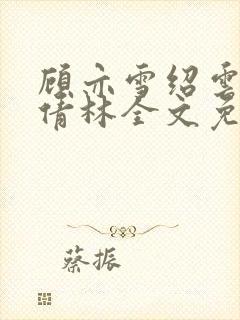 顾亦雪绍雲
倩林全文免
蔡振